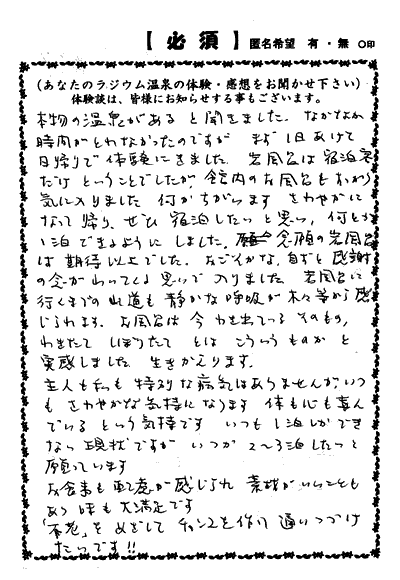 【 必 須 】 匿名希望 有 ・ 無 ○印
(あなたのラジウム温泉の体験・感想をお聞かせ下さい)
体験談は、皆様にお知らせする事もございます。
本物の温泉がある と聞きました。なかなか
時間がとれなかったのですが まず 1日あけて
日帰りで 体験にきました 岩風呂は宿泊客
だけ ということでしたが、館内のお風呂もすっかり
気に入りました 何かちがいます さわやかに
なって帰り、ぜひ 宿泊したいと思い、何とか
1泊できるように しました。念願の岩風呂
は 期待以上でした。おごそかな、自ずと感謝
の念がわいてくる思いで入りました 岩風呂に
行くまでの 道も 静かな呼吸が 木々等から感
じられます。お風呂は 今 わき出ている そのもの、
わきたて しぼりたて とは こういうものか と
実感しました 生きかえります。
主人も私も 特別な病気はありませんが、いつ
も さわやかな気持になります 体も心も喜ん
でいる という気持です いつも 1泊しかでき
ない 現状ですが いつか 2〜3泊したいと
願っています
お食事も 感じられ 素材がいいことも
あり 味も 大満足です
」を めざして チャンスを作り 通いつづけ
たいです!!